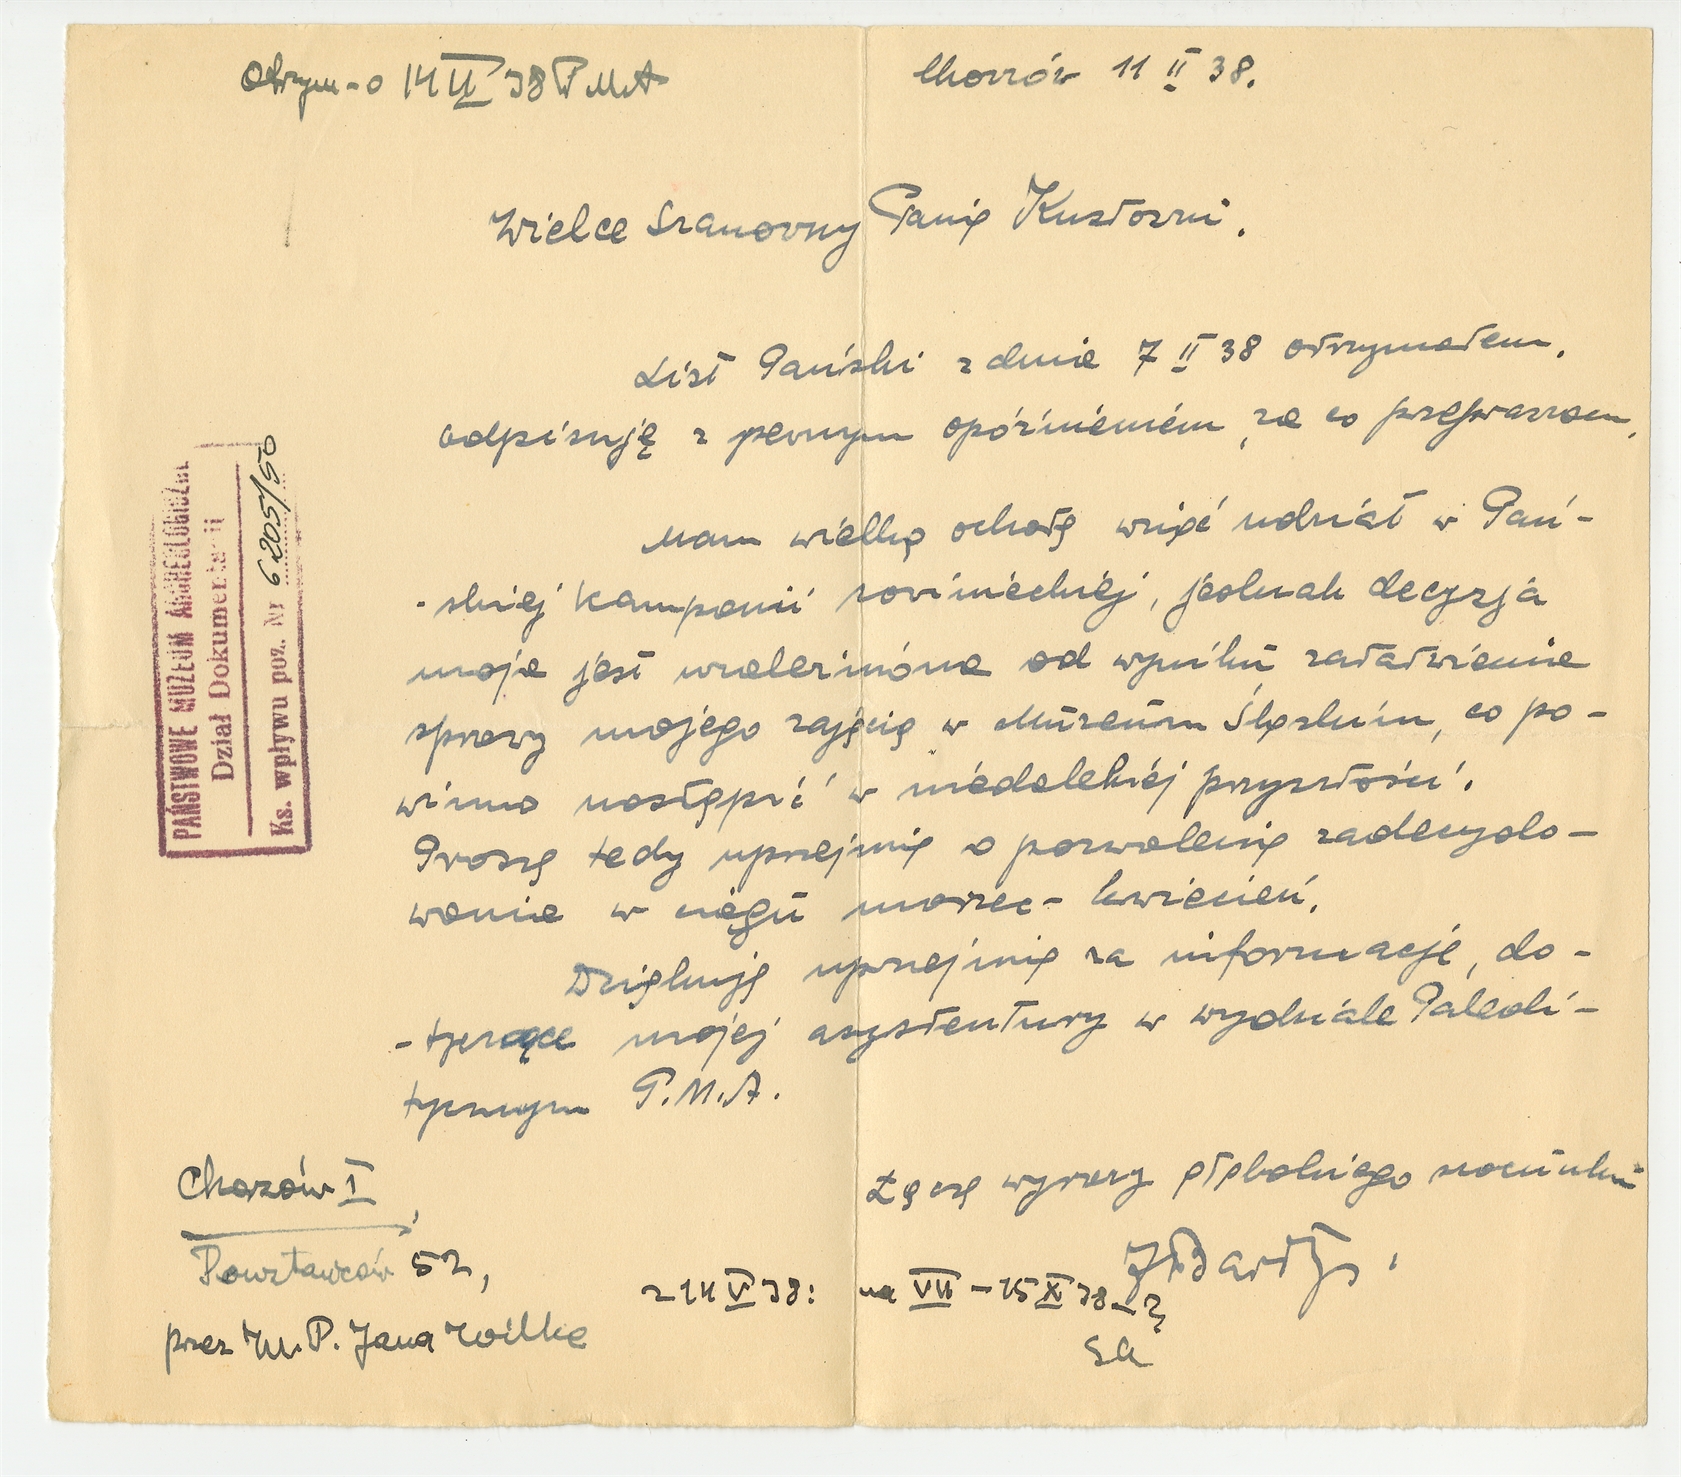 Otrzym-o 14 II 38 PMA
Chorzów 11 II 38.
Wielce Szanowny Panie Kustoszu.
List Pański z dnia 7 II 38 otrzymałem,
odpisuję z pewnym opóźnieniem, za co przepraszam.
Mam wielką ochotę wziąć udział w Pań-
-skiej kampanii rovinieckiej, jednak decyzja
moja jest uzależniona od wyniku załatwienia
sprawy mojego zajęcia w Muzeum Śląskim, co po-
winno nastąpić w niedalekiej przyszłości.
Proszę tedy uprzejmie o pozwolenie zadecydo-
wania w ciągu marzec - kwiecień.
Dziękuję uprzejmie za informacje, do-
-tyczące mojej asystentury w wydziale Paleoli-
tycznym P.M.A.
Łączę wyrazy głębokiego szacunku
JBartys.
Chorzów I,
Powstawców 52,
przez W.P. Jana Wilka
z 14 V 38: na VII – 15 X 38
PAŃSTWOWE MUZEUM ARCHEOLOGICZNE
Dział Dokumentacji
Ks. wpływu poz. Nr 6205/50